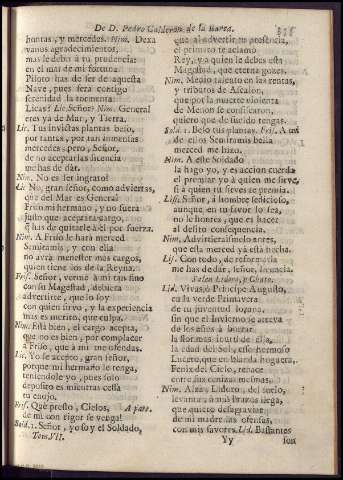 De D. Pedro Calderon de la Barca.
honras, y mercedes. Nim. Dexa
vanos agradecimientos,
mas le deba à tu prudencia:
en el mar de mi fortuna
Piloto has de ser de aquesta
Nave, pues será contigo
serenidad la tormenta.
Licas? Lic. Señor? Nim. General
eres ya de Mar, y Tierra.
Lic. Tus invictas plantas beso,
por tantas, por tan immensas
mercedes; pero, Señor,
de no aceptarlas licencia
me has de dar.
Nim. No es ser ingrato?
Lic No, gran señor, como adviertas,
que del Mar es General
Friso mi hermano, y no fuera
justo que aceptara cargo,
q has de quitarle à èl por fuerza.
Nim. A Friso le hará merced
Semiramis, y con ella
no avrá menester mas cargos,
quien tiene los de la Reyna.
Fris. Señor, vernie à mi tan fino
con su Magestad, debiera
advertirte, que lo soy
con quien sirvo, y la experiencia
mas es merito, que culpa.
Nim. Està bien, el cargo acepta,
que no es bien, por complacer
à Friso, que à mi me ofendas.
Lic. Yo le acepto, gran señor,
porque mi hermano le tenga,
teniendole yo, pues solo
deposito es mientras cessa
tu enojo.
Fris. Què presto, Cielos, A parte.
de mi con rigor se venga!
Sold. 1. Señor, yo soy el Soldado,
Tom. VII.
que al advertir tu presencia,
el primero te aclamó
Rey, y a quien le debes esta
Magestad, que eterna gozes.
Nim. Medio talento en las rentas,
y tributos de Ascalòn,
que por la muerte violenta
de Menon se confiscaron,
quiero que de sueldo tengas.
Sold 1. Belo tus plantas. Fris. A mi
de ellos Semiramis bella
merced me hizo.
Nim. A este Soldado
la hago yo, y es accion cuerda
el premiar yo à quien me sirve,
si à quien tu sirves se premia.
Lisi. Señor, à hombre sedicioso,
aunque en tu favor lo sea,
no le honres, que es hacer
al delito consequencia.
Nim. Advirtieraislo antes,
que esta merced yà està hecha.
Lis. Con todo, de reformarla
me has de dar, señor, licencia.
Salen Lidoro, y Chato.
Lid. Vivas, ò Principe Augusto,
en la verde Primavera
de tu juventud lozana,
sin que el Invierno se atreva
de los años à borrar
la edad del Sol, esse hermoso
Lucero, que en blanda hoguera,
Fenix del Cielo, renace
entre sus cenizas mesmas.
Nim. Alza, Lidoro, del suelo,
levanta, à mis brazos llega,
que quiero desagraviar
de mi madre las ofensas,
con mis favores. Lid. Bastantes
Yy son